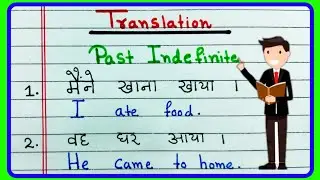 Translation
Past Indefinite
1. मैंने खाना खाया ।
I ate food.
2. वह घर आया ।
He came to home.